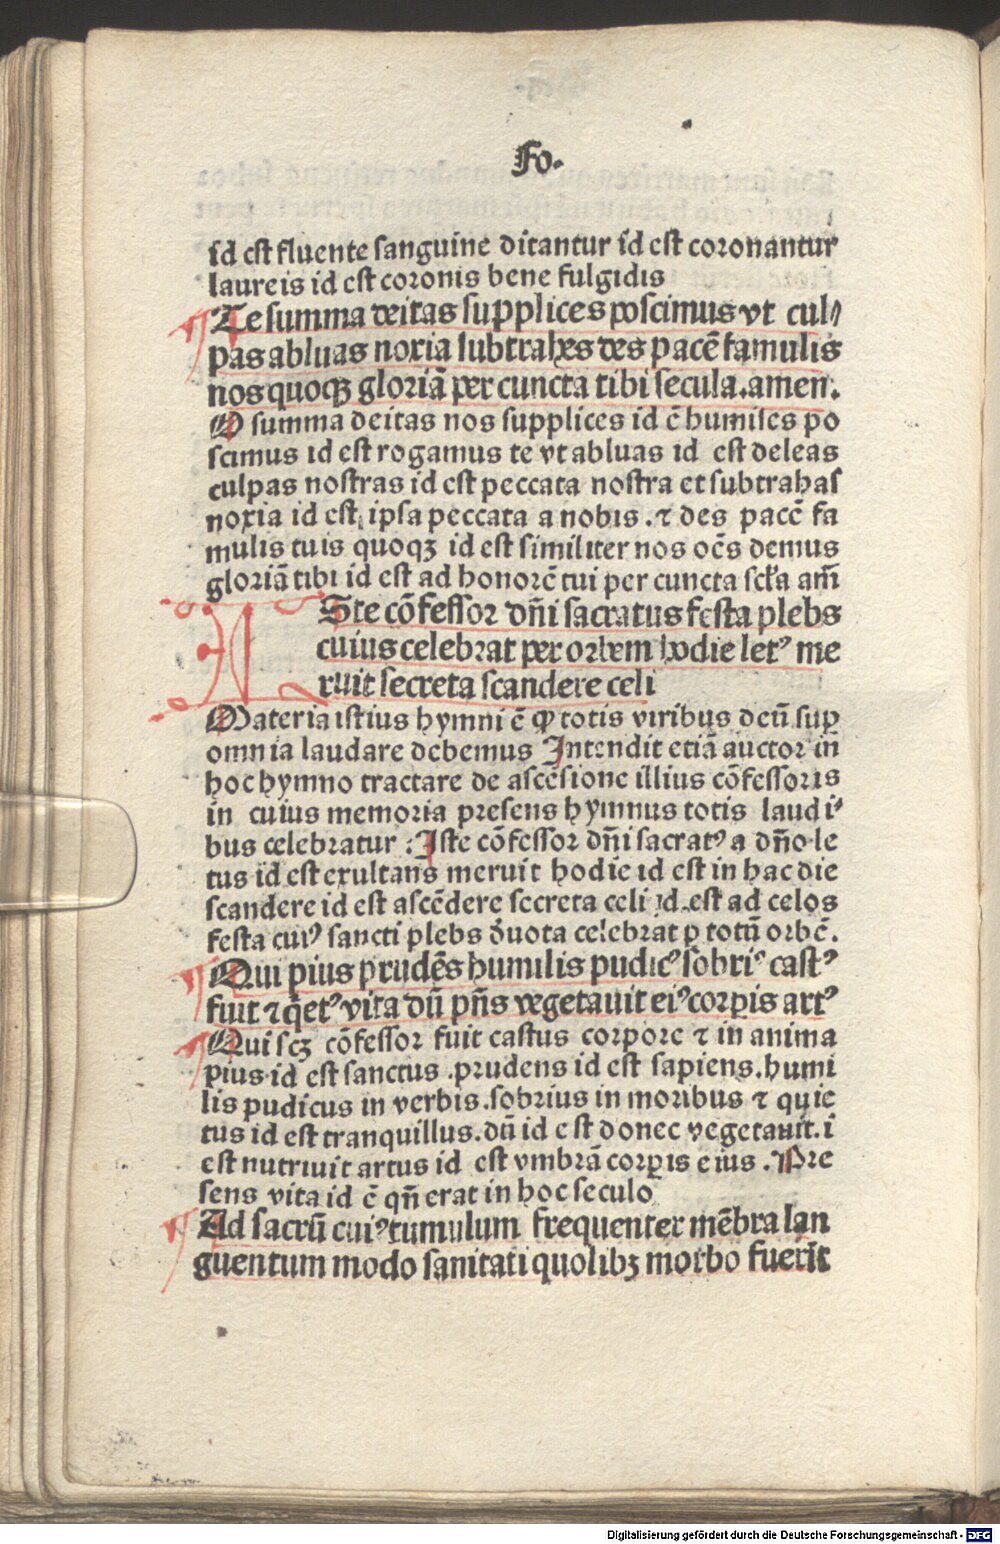 Fo.
id est fluente sanguine ditantur id est coronantur
laureis id est coronis bene fulgidis
Te summa deitas supplices poscimus vt cul⸗
pas abluas noxia subtrahes des pacē famulis
nos quoqꝫ gloriā per cuncta tibi secula.amen.
O summa deitas nos supplices id ē humiles po
scimus id est rogamus te vt abluas id est deleas
culpas nostras id est peccata nostra et subtrahas
noxia id est ipsa peccata a nobis.⁊ des pacē fa
mulis tuis quoqꝫ id est similiter nos oēs demus
gloriā tibi id est ad honorē tui per cuncta scƚa am̄
ISte cōfessor dn̄i sacratus festa plebs
cuius celebrat per orbem hodie letꝰ me
ruit secreta scandere celi
Materia istius hymni ē ꝙ totis viribus deū suꝑ
omnia laudare debemus Intendit etiā auctor in
hoc hymno tractare de ascēsione illius cōfessoris
in cuius memoria presens hymnus totis laudi⸗
bus celebratur : Iste cōfessor dn̄i sacratꝰ a dn̄o le
tus id est exultans meruit hodie id est in hac die
scandere id est ascēdere secreta celi id est ad celos
festa cuiꝰ sancti plebs deuota celebrat ꝑ totū orbē.
Qui pius prudēs humilis pudicꝰ sobriꝰ castꝰ
fuit ⁊ q̄etꝰ vita dū pn̄s vegetauit eiꝰ corꝑis artꝰ
Qui scꝫ cōfessor fuit castus corpore ⁊ in anima
pius id est sanctus .prudens id est sapiens.humi
lis pudicus in verbis.sobrius in moribus ⁊ quie
tus id est tranquillus.dū id est donec vegetauit.i
est nutriuit artus id est vmbrā corꝑis eius .Pre
sens vita id ē qn̄ erat in hoc seculo
Ad sacrū cuiꝰ tumulum frequenter mēbra lan
guentum modo sanitati quolibꝫ morbo fuerīt
Digitalisierung gefördert durch die Deutsche Forschungsgemeinschaft - DFG